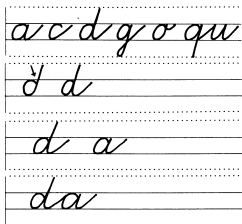 a c d g o qu
d d
d a
da